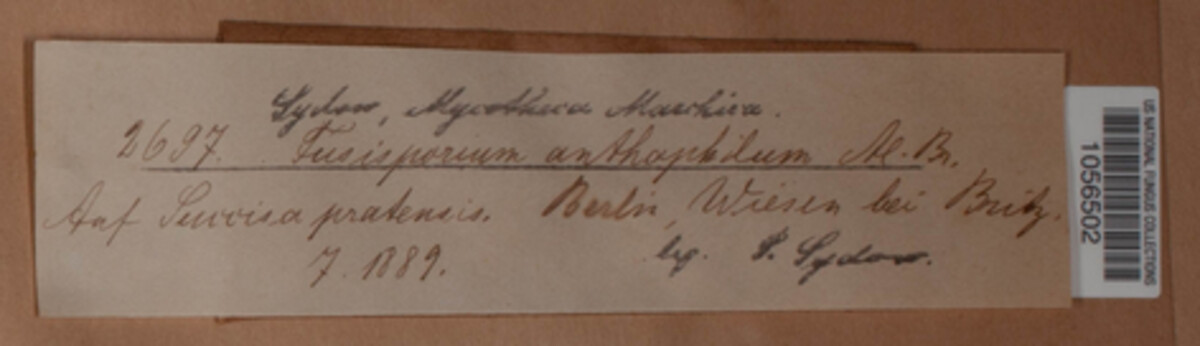 Sydow, Mycotheca Marchica.
2697. Fusisporium anthophilum Al. Br.
Auf Succisa pratensis. Berlin, Wiesen bei Britz.
7. 1889. leg. P. Sydow.
US NATIONAL FUNGUS COLLECTIONS
1056502